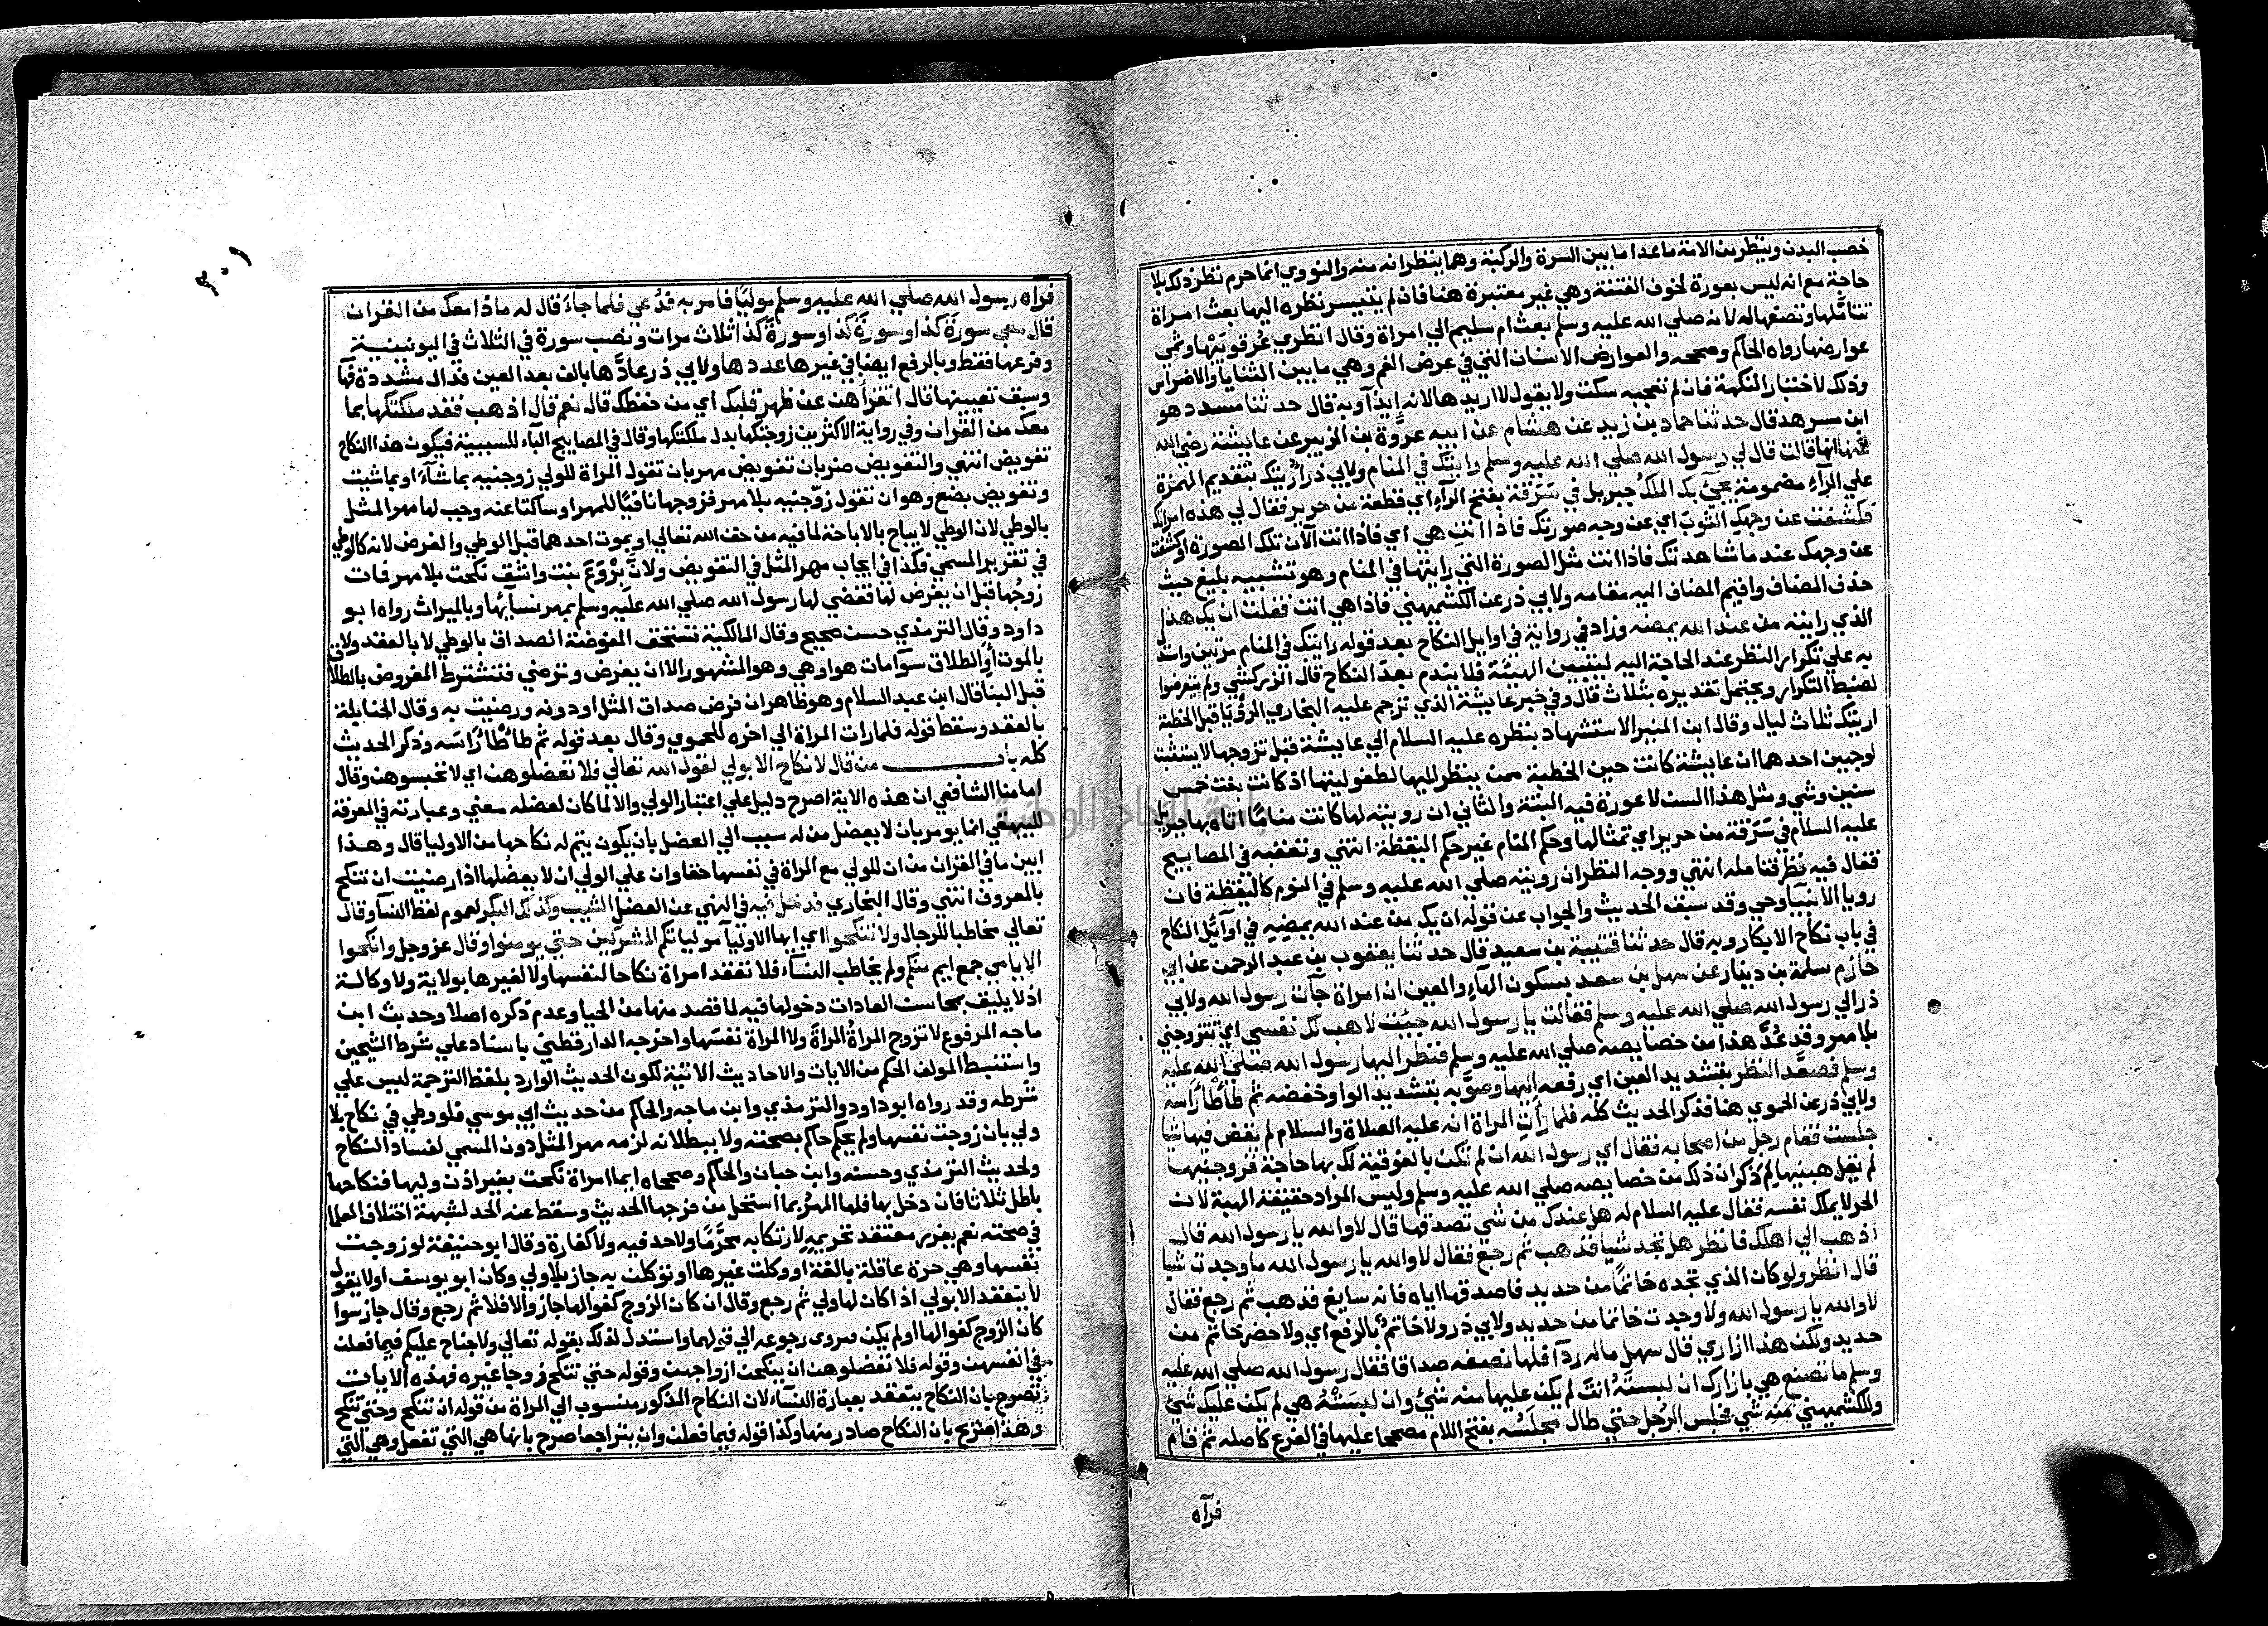 خصب البدن وينظر من الامة ما عدا ما بين السرة والركبة وهما ينظرانه منه والنووي انما حرم نظر ذلك بلا
حاجة مع انه ليس بعورة لخوف الفتنة وهي غير معتبرة هنا فان لم يتيسر نظره اليها بعث امراة
تتاملها وتصفها له لانه صلي الله عليه وسلم بعث ام سليم الي امراة وقال انظري عرقوبيها وشمي
عوارضها رواه الحاكم وصححه والعوارض الاسنان التي في عرض الفم وهي ما بين الثنايا والاضراس
وذلك لاختبار النكهة فان لم تعجبه سكت ولا يقول لا اريدها لانه ايذآ وبه قال حدثنا مسدد هو
ابن مسرهد قال حدثنا حماد بن زيد عن هشام عن ابيه عروة بن الزبير عن عايشة رضي الله
عنها انها قالت قال لي رسول الله صلي الله عليه وسلم رايتك في المنام ولابي ذر اريتك بتقديم الهمزة
علي الرآء مضمومة يجيء بك الملك جبريل في سرقة بفتح الرآء اي قطعة من حرير فقال لي هذه امراتك
فكشفت عن وجهك الثوب اي عن وجه صورتك فاذا انت هي اي فاذا انت الآن تلك الصورة او كشفت
عن وجهك عند ما شاهدتك فاذا انت مثل الصورة التي رايتها في المنام وهو تشبيه بليغ حيث
حذف المضاف واقيم المضاف اليه مقامه ولابي ذر عن الكشميهني فاذا هي انت فقلت ان يك هذا
الذي رايته من عند الله يمضه وزاد في رواية في اوايل النكاح بعد قوله رايتك في المنام مرتين واستدل
به علي تكرار النظر عند الحاجة اليه ليتبين الهيئة فلا يندم بعد النكاح قال الزركشي ولم يتعرضوا
لضبط التكرار ويحتمل تقديره بثلاث قال وفي خبر عايشة الذي ترجم عليه البخاري الرؤيا قبل الخطبة
اريتك ثلاث ليال وقال ابن المنير الاستشهاد بنظره عليه السلام الي عايشة قبل تزوجها لا يتثبت
لوجهين احدهما ان عايشة كانت حين الخطبة ممن ينظر اليها لطفوليتها اذ كانت بنت خمس
سنين وشي ومثل هذا السن لا عورة فيه البتة والثاني ان رويته لها كانت مناما اتاه بها جبريل
عليه السلام في سرقة من حرير اي تمثالها وحكم المنام غير حكم اليقظة انتهي وتعقبه في المصابيح
فقال فيه نظر فتامله انتهي ووجه النظر ان رويته صلي الله عليه وسلم في النوم كاليقظة فان
رويا الانبيآ وحي وقد سبق الحديث والجواب عن قوله ان يك من عند الله يمضه في اوآئل النكاح
في باب نكاح الابكار وبه قال حدثنا قتيبة بن سعيد قال حدثنا يعقوب بن عبد الرحمن عن ابي
حازم سلمة بن دينار عن سهل بن سعد بسكون الهآء والعين ان امراة جآت رسول الله ولابي
ذر الي رسول الله صلي الله عليه وسلم فقالت يا رسول الله جيئت لاهب لك نفسي اي تتزوجني
بلا مهر وقد عد هذا من خصايصه صلي الله عليه وسلم فنظر اليها رسول الله صلي الله عليه
وسلم فصعد النظر بتشديد العين اي رفعه اليها وصوبه بتشديد الواو خفضه ثم طأطأ راسه
ولابي ذر عن الحموي هنا فذكر الحديث كله فلما رات المراة انه عليه الصلاة والسلام لم يقض فيها شيا
جلست فقام رجل من اصحابه فقال اي رسول الله ان لم تكن بالفوقية لك بها حاجة فزوجنيها
لم يقل هبنيها لم ذكر ان ذلك من خصايصه صلي الله عليه وسلم وليس المراد حقيقة الهبة لان
الحر لا يملك نفسه فقال عليه السلام له هل عندك من شي تصدقها قال لا والله يا رسول الله قال
اذهب الي اهلك فانظر هل تجد شيا فذهب ثم رجع فقال لا والله يا رسول الله ما وجدت شيا
قال انظر ولو كان الذي تجده خاتما من حديد فاصدقها اياه فانه سايغ فذهب ثم رجع فقال
لا والله يا رسول الله ولا وجدت خاتما من حديد ولابي ذر ولا خاتم بالرفع اي ولا حضر خاتم من
حديد ولكن هذا ازاري قال سهل ماله ردآ فلها نصفه صداقا فقال رسول الله صلي الله عليه
وسلم ما تصنع هي بازارك ان لبسته انت لم يكن عليها منه شيء وان لبسته هي لم يكن عليك شي
وللكشميهني منه شي فجلس الرجل حتي طال مجلسه بفتح اللام مصححا عليها في الفرع كاصله ثم قام
فرآه
٣٠١
فراه رسول الله صلي الله عليه وسلم موليا فامر به فدعي فلما جاء قال له ماذا معك من القران
قال معي سورة كذا وسورة كذا وسورة كذا ثلاث مرات ونصب سورة في الثلاث في اليونينية
وفرعها فقط وبالرفع ايضا في غيرها عددها ولابي ذر عادها بالف بعد العين فدال مشددة فها
وسبق تعيينها قال اتقراهن عن ظهر قلبك اي من حفظك قال نعم قال اذهب فقد ملكتكها بما
معك من القران وفي رواية الاكثرين زوجتكها بدل ملكتكها وقال في المصابيح الباء للسببية فيكون هذا النكاح
تفويض انتهي والتفويض ضربان تفويض مهر بان تقول المراة للولي زوجنيه بما شآء او بما شيت
وتفويض بضع وهو ان تقول زوجنيه بلا مهر فزوجها نافيا للمهر او ساكتا عنه وجب لها مهر المثل
بالوطي لان الوطي لا يباح بالاباحة لما فيه من حق الله تعالي او بموت احدهما قبل الوطي والفرض لانه كالوطي
في تقرير المسمي فكذا في ايجاب مهر المثل في التفويض ولان بروع بنت واشق نكحت بلا مهر فمات
زوجها قبل ان يفرض لها فقضي لها رسول الله صلي الله عليه وسلم بمهر نسآيها وبالميراث رواه ابو
داود وقال الترمذي حسن صحيح وقال المالكية تستحق المفوضة الصداق بالوطي لا بالعقد ولا
بالموت او الطلاق سوآ مات هو او هي وهو المشهور الا ان يفرض وترضي فتشترط المفروض بالطلاق
قبل البنا قال ابن عبد السلام وهو ظاهر ان فرض صداق المثل او دونه ورضيت به وقال الحنابلة
بالعقد وسقط قوله فلما رات المراة الي اخره للحموي وقال بعد قوله ثم طأطأ راسه وذكر الحديث
كله باب من قال لا نكاح الا بولي لقول الله تعالي فلا تعضلوهن اي لا تحبسوهن وقال
امامنا الشافعي ان هذه الاية اصرح دليل علي اعتبار الولي والا لما كان لعضله معني وعبارته في المعرفة
للبيهقي انما يومر بان لا يعضل من له سبب الي العضل بان يكون يتم له نكاحها من الاوليا قال وهذا
ابين ما في القران من ان للولي مع المراة في نفسها حقا وان علي الولي ان لا يعضلها اذا رضيت ان تنكح
بالمعروف انتهي وقال البخاري فدخل فيه في النهي عن العضل الثيب وكذلك البكر لعموم لفظ النسآ وقال
تعالي مخاطبا للرجال ولا تنكحوا اي ايها الاوليآ مولياتكم المشركين حتي يومنوا وقال عز وجل وانكحوا
الايامي جمع ايم منكم ولم يخاطب النسآء فلا تعقد امراة نكاحا لنفسها ولا لغيرها بولاية ولا وكالة
اذ لا يليق بمحاسن العادات دخولها فيه لما قصد منها من الحيا وعدم ذكره اصلا وحديث ابن
ماجه المرفوع لا تزوج المراة المراة ولا المراة نفسها واخرجه الدارقطني باسناد علي شرط الشيخين
واستنبط المولف الحكم من الايات والاحاديث الاتية لكون الحديث الوارد بلفظ الترجمة ليس علي
شرطه وقد رواه ابو داود والترمذي وابن ماجه والحاكم من حديث ابي موسي فلو وطي في نكاح بلا
ولي بان زوجت نفسها ولم يحكم حاكم بصحته ولا ببطلانه لزمه مهر المثل دون المسمي لفساد النكاح
ولحديث الترمذي وحسنه وابن حبان والحاكم وصححاه ايما امراة نكحت بغير اذن وليها فنكاحها
باطل ثلاثا فان دخل بها فلها المهر بما استحل من فرجها الحديث وسقط عنه الحد لشبهة اختلاف العلما
في صحته نعم يعزر معتقد تحريمه لارتكابه محرما ولا حد فيه ولا كفارة وقال ابو حنيفة لو زوجت
نفسها وهي حرة عاقلة بالغة او وكلت غيرها او توكلت به جاز بلا ولي وكان ابو يوسف اولا يقول
لا ينعقد الا بولي اذا كان لها ولي ثم رجع وقال ان كان الزوج كفوا لها جاز والا فلا ثم رجع وقال جاز سوا
كان الزوج كفوا لها او لم يكن وروي رجوعه الي قولهما واستدل لذلك بقوله تعالي ولا جناح عليكم فيما فعلن
في انفسهن وقوله فلا تعضلوهن ان ينكحن ازواجهن وقوله حتي تنكح زوجا غيره فهذه الايات
تصرح بان النكاح ينعقد بعبارة النسآء لان النكاح المذكور منسوب الي المراة من قوله ان تنكح وحتي تنكح
وهذا صريح بان النكاح صادر منها وكذا قوله فيما فعلن وان يتراجعا صرح بانها هي التي تفعل وهي التي